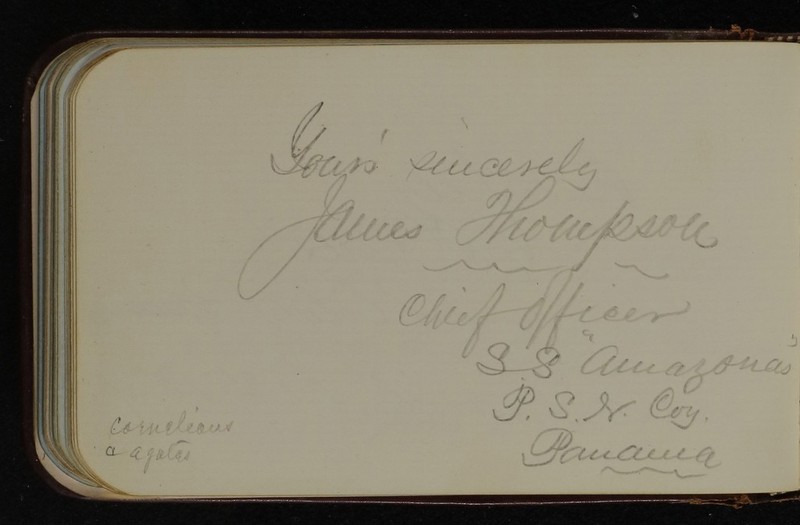 Yours sincerely
James Thompson
Chief Officer
S.S "Amazonas"
P. S. N. Coy.
Panama
cornelians
& agates